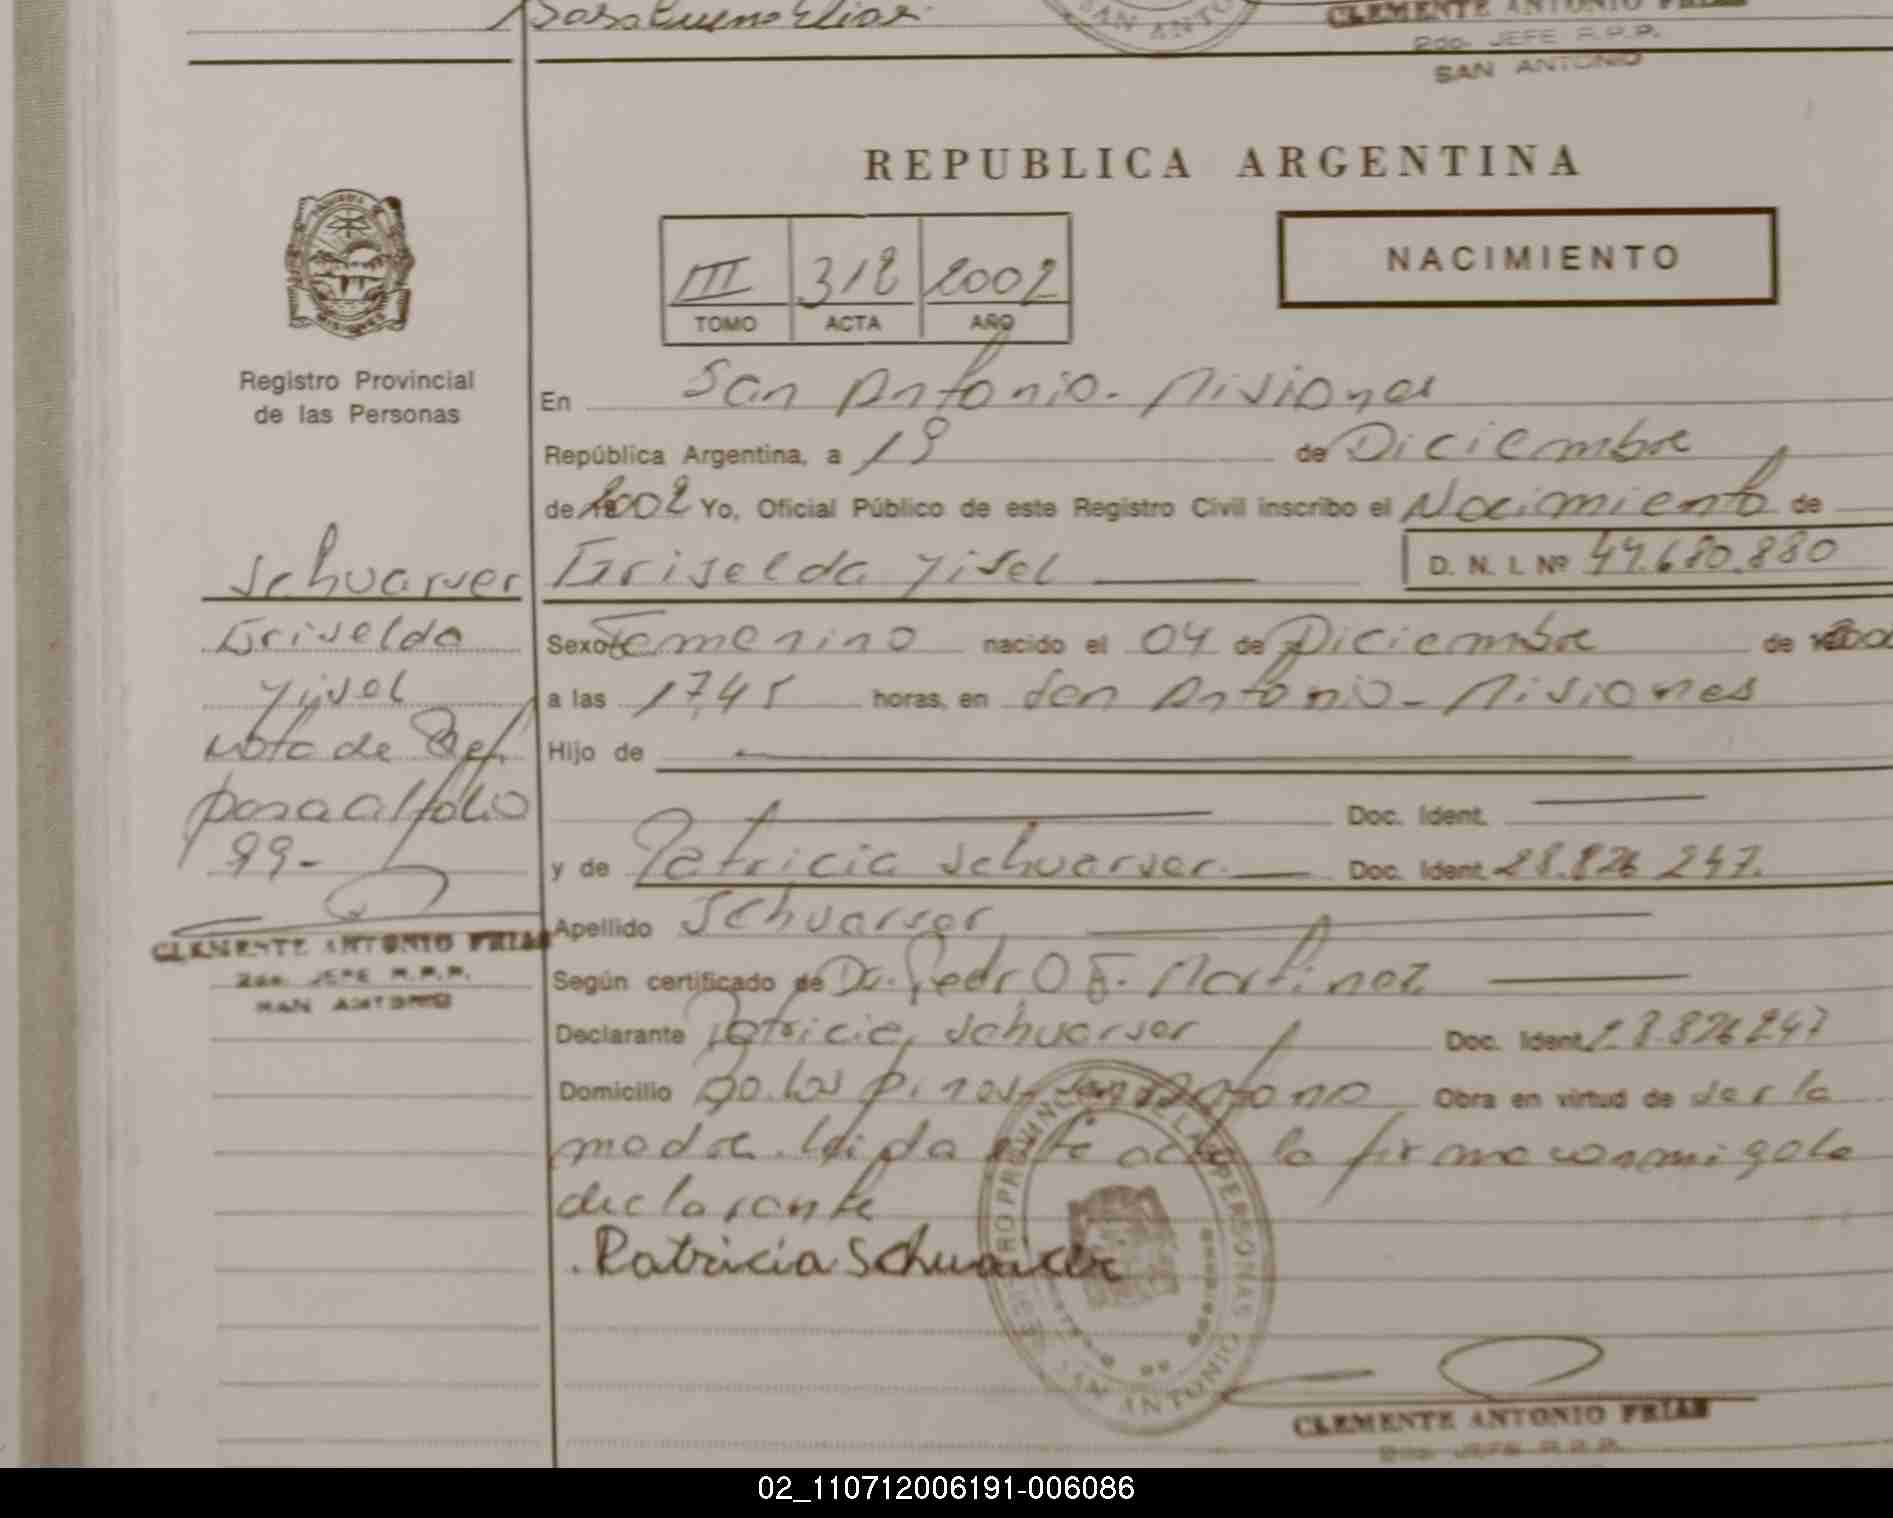 CLEMENTE ANTONIO FRIAS
SAN ANTO
2do. JEFE R.P.P.
SAN ANTONIO
REPUBLICA ARGENTINA
NACIMIENTO
III 318 2002
TOMO ACTA AÑO
Registro Provincial
de las Personas
En San Antonio - Misiones
República Argentina, a 19 de Diciembre
de 2002 Yo, Oficial Público de este Registro Civil inscribo el Nacimiento de
Griselda yisel D. N. I. Nº 44.680.880
Sexo Femenino nacido el 04 de Diciembre de 200
a las 17,45 horas, en San Antonio - Misiones
Hijo de
Doc. Ident.
y de Patricia Schuarser Doc. Ident. 28.826 247.
Apellido Schuarser
Según certificado de Dr. Pedro E. Martinez
Declarante Patricia Schuarser Doc. Ident. 28.826247
Domicilio Bo. Los pinos San Antonio Obra en virtud de ser la
madre. Leida este acta la firma conmigo la
declarante
Patricia Schuarser
Schuarser
Griselda
yisel
Nota de Ref.
pasa al folio
99-
CLEMENTE ANTONIO FRIAS
2do. JEFE R.P.P.
SAN ANTONIO
REGISTRO PROVINCIAL DE LAS PERSONAS
SAN ANTONIO
CLEMENTE ANTONIO FRIAS
2do. JEFE R.P.P.
02_110712006191-006086